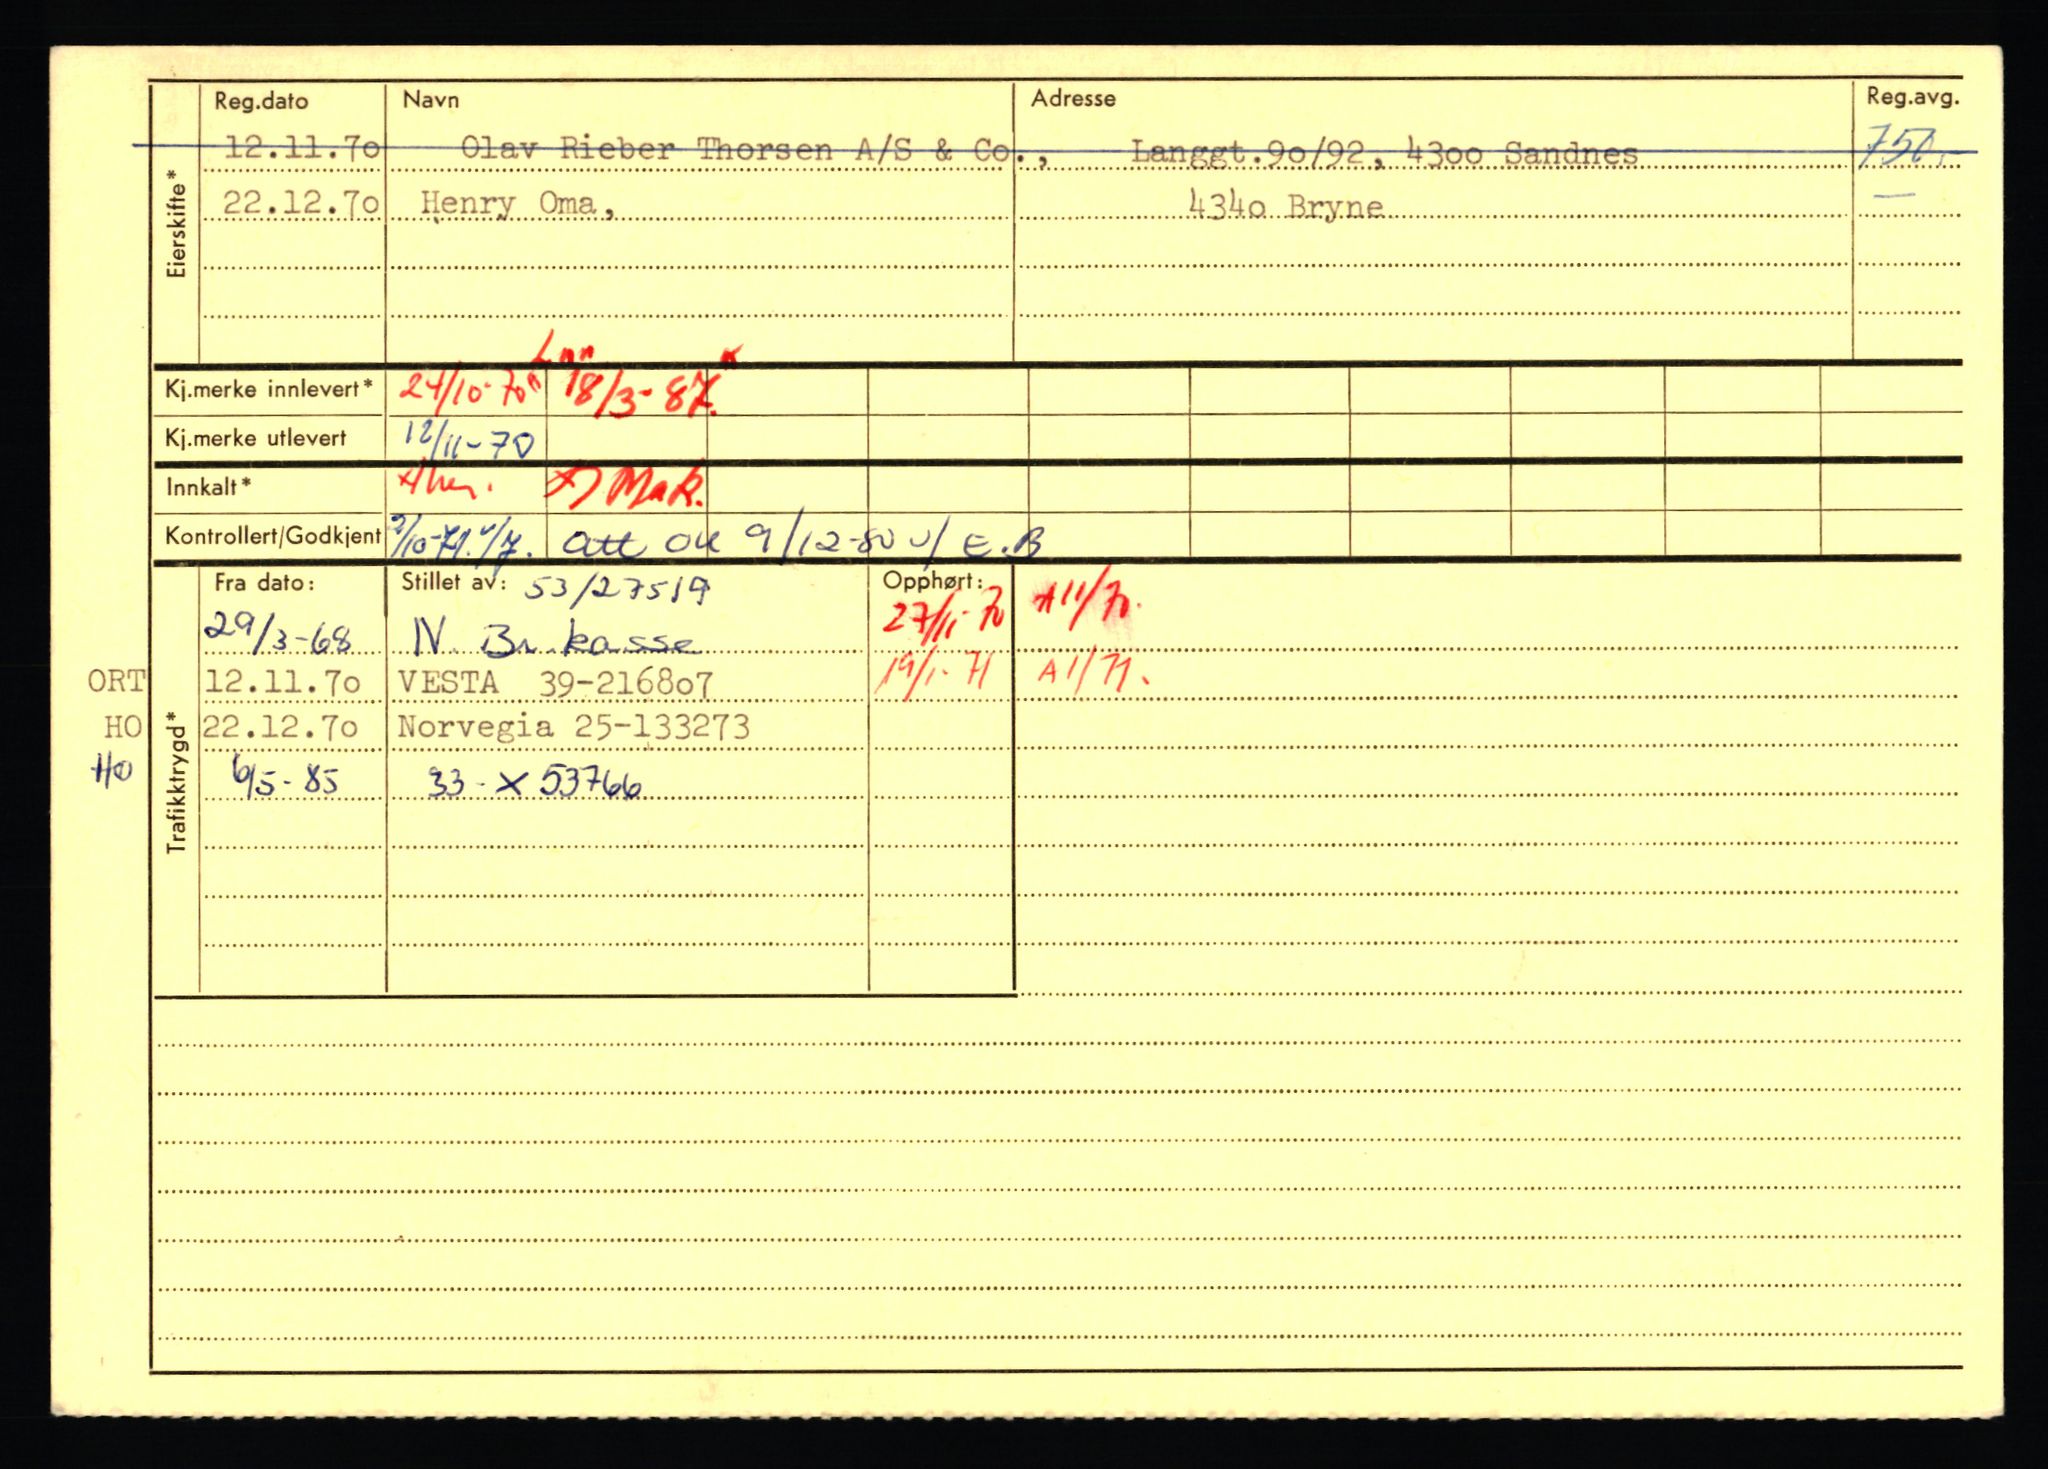 Reg.dato Navn Adresse Reg.avg.
12.11.7o Olav Rieber Thorsen A/S & Co., Langgt.9o/92, 43oo Sandnes 750.-
22.12.7o Henry Oma, 434o Bryne —
Eierskifte*
Kj.merke innlevert* 24/10-70 18/3-87.
Kj.merke utlevert 12/11-70
Innkalt*
Kontrollert/Godkjent att ok 9/12-80 v/ E.B
Fra dato: Stillet av: 53/27519 Opphørt:
29/3-68 N. Br. kasse 27/11-70 A11/70.
ORT 12.11.7o VESTA 39-2168o7 19/1-71 A1/71.
HO 22.12.7o Norvegia 25-133273
HO 6/5-85 33-X53766
Trafikktrygd*